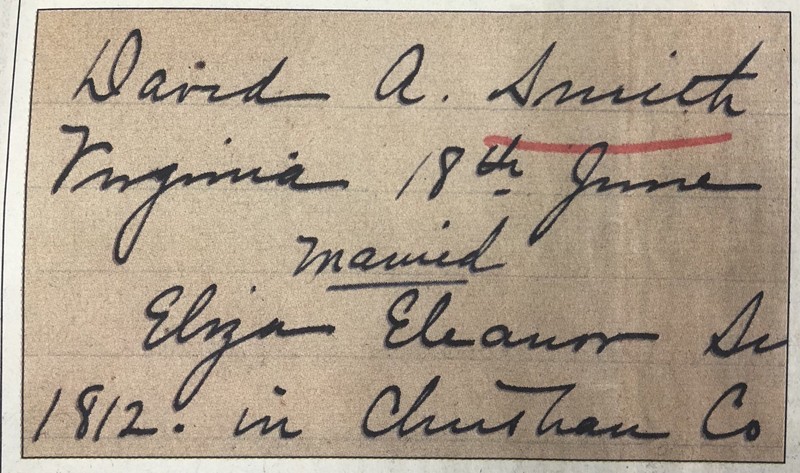 David A. Smith
Virginia 18th June
Married
Eliza Eleanor
1812. in Christian Co